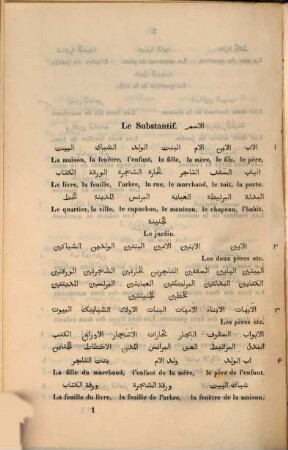 Le Substantif. الاسم
الاب الابن الام البنت الولد الشباك البيت ١
La maison, la fenêtre, l'enfant, la fille, la mère, le fils, le père.
الباب السقف التاجر الحارة الشاجرة الورقة الكتاب
Le livre, la feuille, l'arbre, la rue, le marchand, le toit, la porte.
البدلة البرنيطة العباية البرنس المدينة الخط
Le quartier, la ville, le capuchon, le manteau, le chapeau, l'habit.
الجنينة
Le jardin.
الابين الابنين الامين البنتين الولدين الشباكين ٢
Les deux pères etc.
البيتين البابين السقفين التاجرين الحارتين الشاجرتين الورقتين
الكتابين البدلتين البرنيطتين العبايتين البرنسين المدينتين
الخطين الجنينتين
٣
Les pères etc.
اب الولد ولد الام بنت التاجر ٤
La fille du marchand, l'enfant de la mère, le père de l'enfant.
شباك البيت ورقة الشاجرة ورقة الكتاب
La feuille du livre, la feuille de l'arbre, la fenêtre de la maison.
1